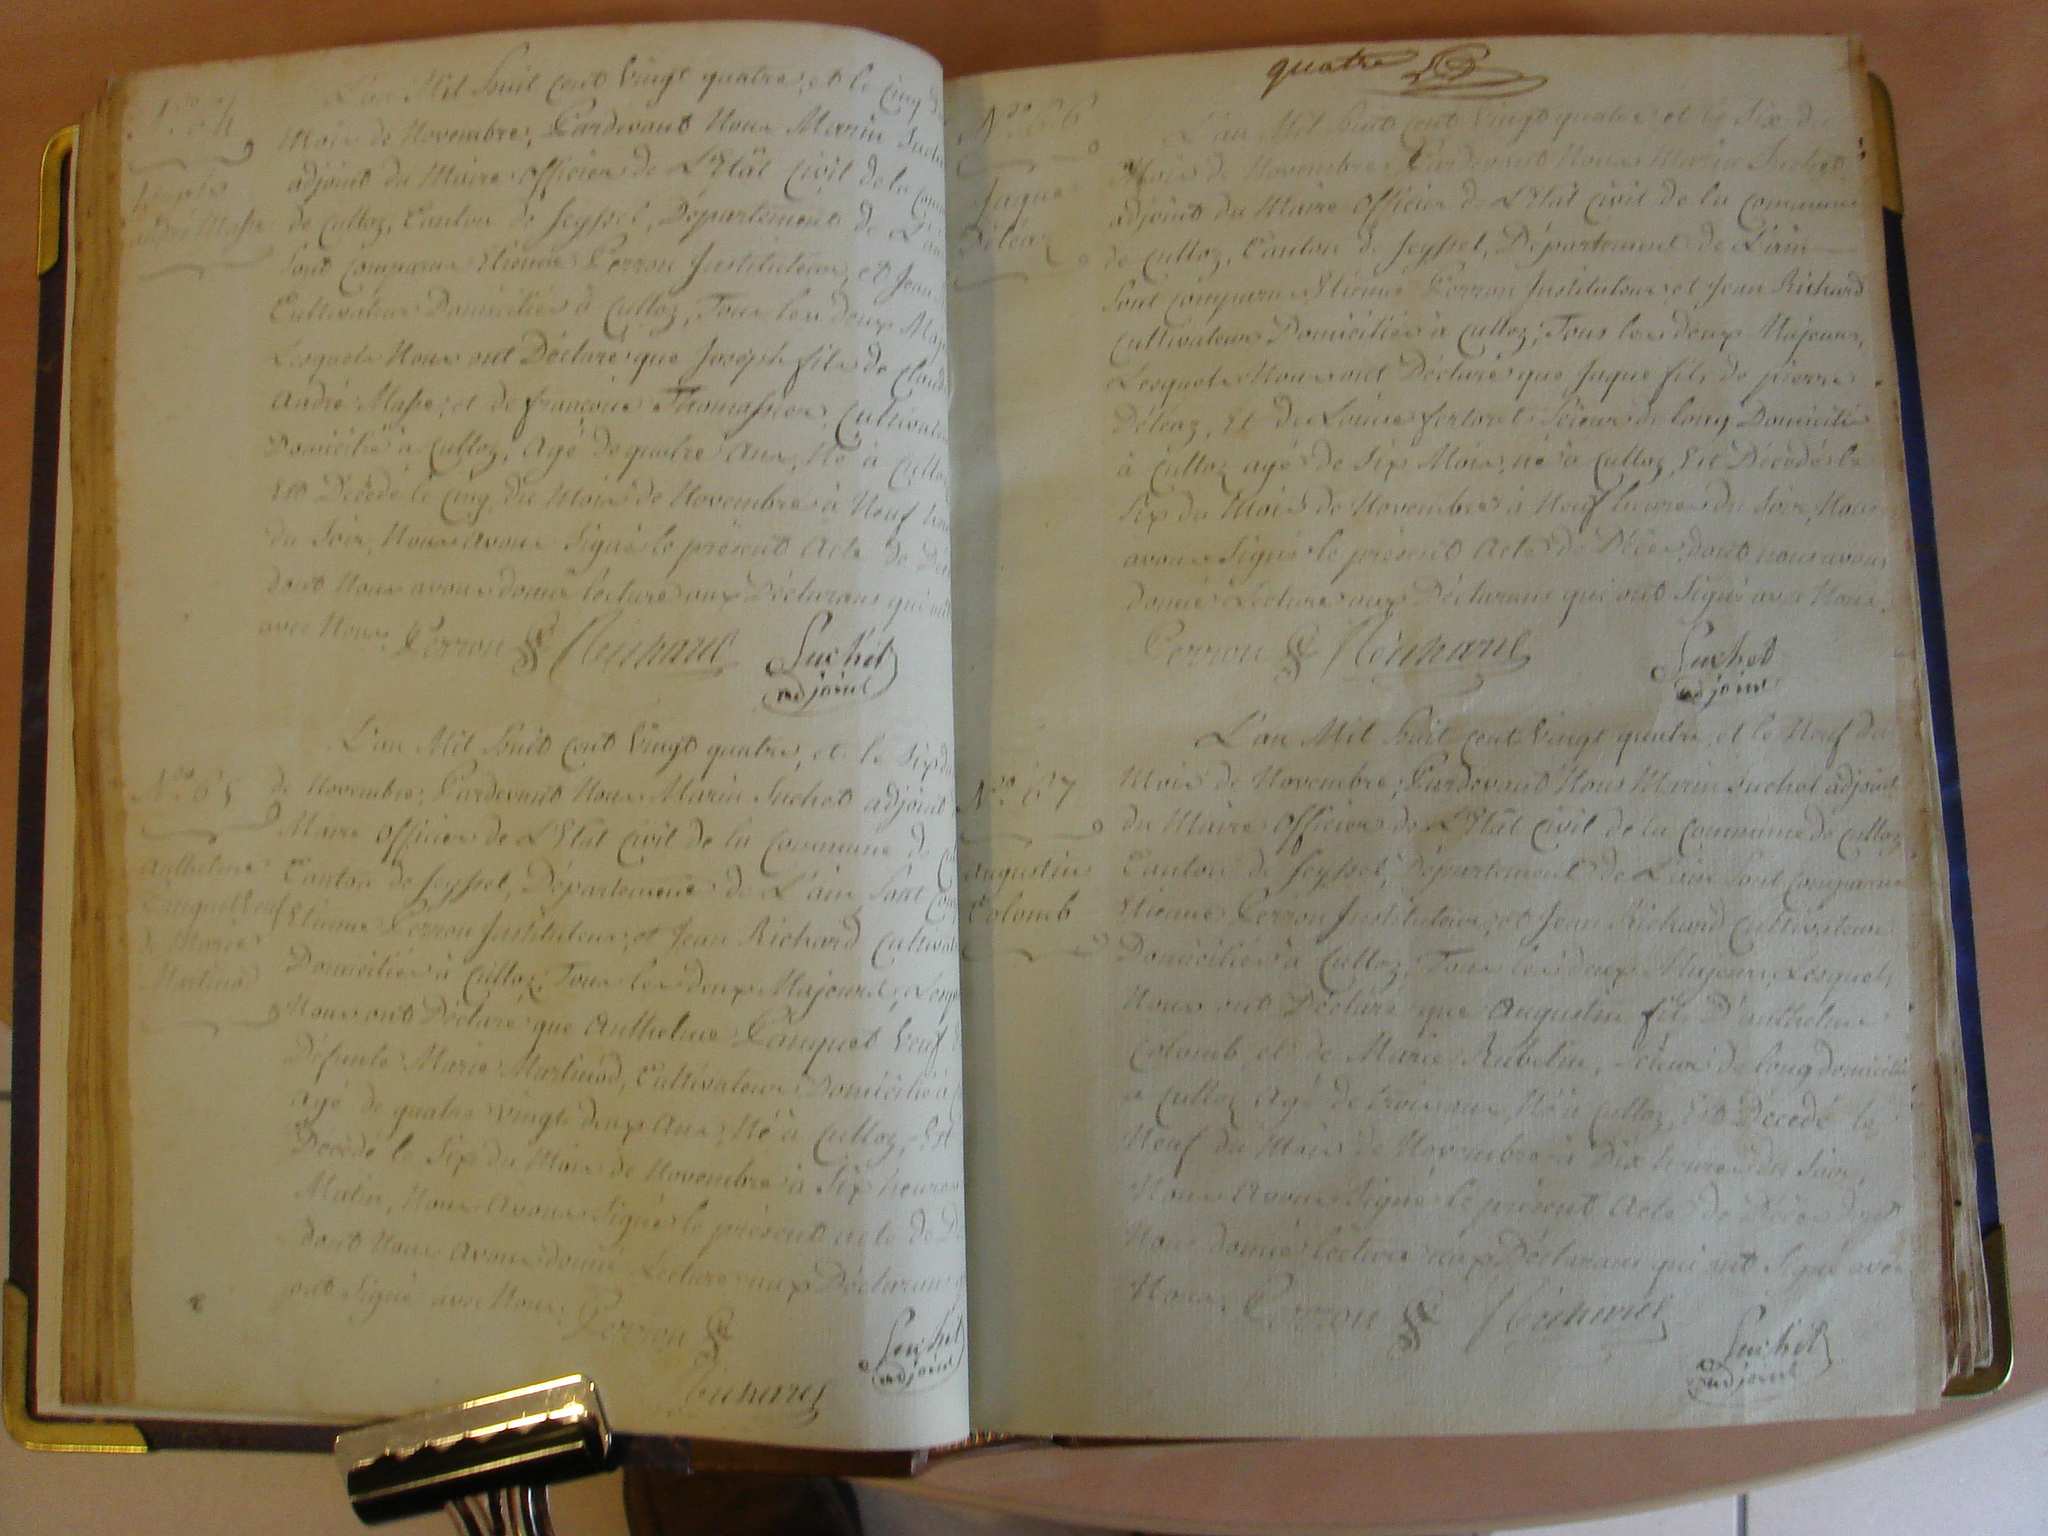 N.ro 64
Joseph
andré Masse
L'an Mil huit cent vingt quatre, et le cinq du
Mois de Novembre, Pardevant Nous Marin Suche
adjoint du Maire Officier de L'Etât Civil de la Com
de Culloz, Canton de Seyssel, Département de L'ai
Sont comparus Etienne Perron Instituteur, et Jean
Cultivateur Domiciliés à Culloz, Tous les deux Maj
Lesquels Nous ont Déclaré que Joseph fils de Claud
André Masse, et de françoise Thomassier, Cultivate
Domicilié à Culloz, Agé de quatre Ans, Né à Culloz
Est Décédé le Cinq du Mois de Novembre à Neuf heu
du Soir, Nous avons Signé le présent Acte de Dé
dont Nous avons donné lecture aux Déclarans qui ont
avec Nous. Perron Richard Suchet
adjoint
N.ro 65
Anthelme
Panquet Veuf
de Marie
Martinod
L'an Mil huit cent vingt quatre, et le Six du
de Novembre, Pardevant Nous Marin Suchet adjoint
Maire Officier de L'Etat Civil de la Commune de Cu
Canton de Seyssel, Département de L'ain, Sont Com
Etienne Perron Instituteur, et Jean Richard Cultivate
Domiciliés à Culloz, Tous les deux Majeurs, Lesq
Nous ont Déclaré que Anthelme Panquet Veuf
Défunte Marie Martinod, Cultivateur Domicilié à
agé de quatre vingt deux Ans, Né à Culloz, Est
Décédé le Six du Mois de Novembre à Six heures
Matin, Nous Avons Signé le présent acte de D
dont Nous Avons donné Lecture aux Déclarans q
ont Signé avec Nous. Perron
Richard Suchet
adjoint
quatre
N.ro 66
Jaque
Déléaz
L'an Mil huit cent vingt quatre et le Six du
Mois de Novembre, Pardevant Nous Marin Suchet
adjoint du Maire Officier de L'Etat Civil de la Commune
de Culloz, Canton de Seyssel, Département de L'ain
Sont comparus Etienne Perron Instituteur et Jean Richard
Cultivateur Domiciliés à Culloz, Tous les deux Majeurs,
Lesquels Nous ont Déclaré que Jaque fils de pierre
Déléaz, Et de Louise fertoret Scieur de long Domicilié
à Culloz agé de Six Mois, né à Culloz, Est Décédé le
Six du Mois de Novembre à Neuf heures du Soir, Nous
avons Signé le présent Acte de Décès, dont nous avons
donné Lecture aux Déclarans qui ont Signé avec Nous.
Perron Richard Suchet
adjoint
N.ro 67
Augustin
Colomb
L'an Mil huit cent vingt quatre, et le Neuf du
Mois de Novembre, Pardevant Nous Marin Suchet adjoint
du Maire Officier de L'Etât Civil de la Commune de Culloz
Canton de Seyssel, Département de L'ain Sont Comparus
Etienne Perron Instituteur, et Jean Richard Cultivateur
Domiciliés à Culloz, Tous les deux Majeurs, Lesquels
Nous ont Déclaré que Augustin fils D'anthelme
Colomb, et de Marie Rubelin, Scieur de long domicilié
a Culloz Agé de trois ans, Né à Culloz, Est Décédé le
Neuf du Mois de Novembre à Dix heures du Soir,
Nous Avons Signé le présent Acte de Décès dont
Nous donné lecture aux Déclarans qui ont Signé avec
Nous. Perron Richard Suchet
adjoint